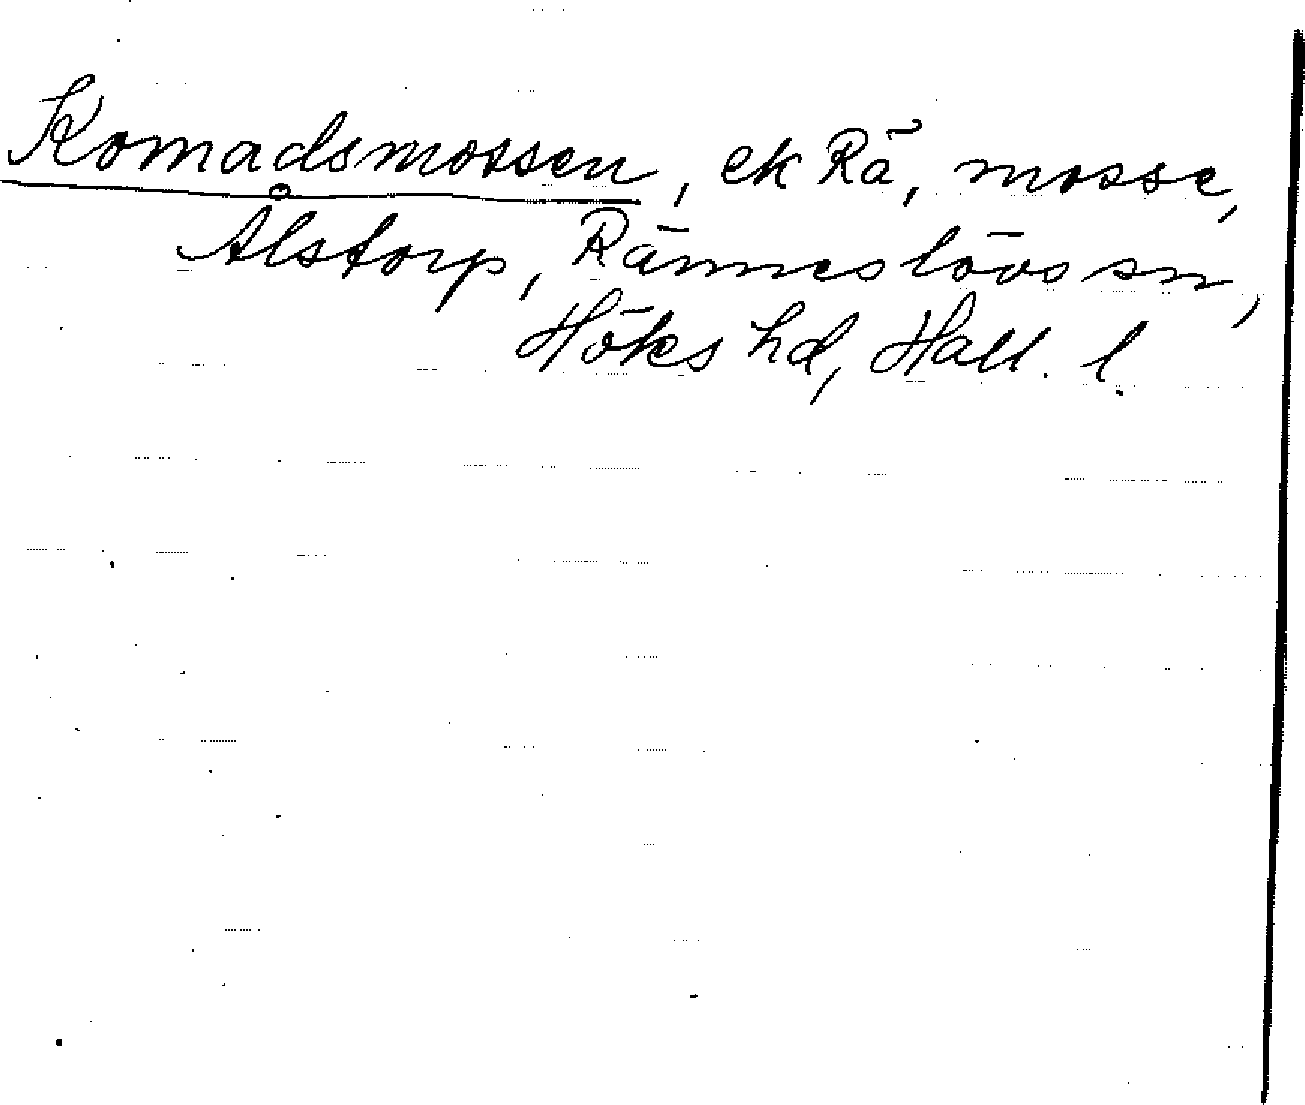 Komadsmossen, ek Rä, mosse,
Ålstorp, Ränneslövs sn,
Höks hd, Hall. l.